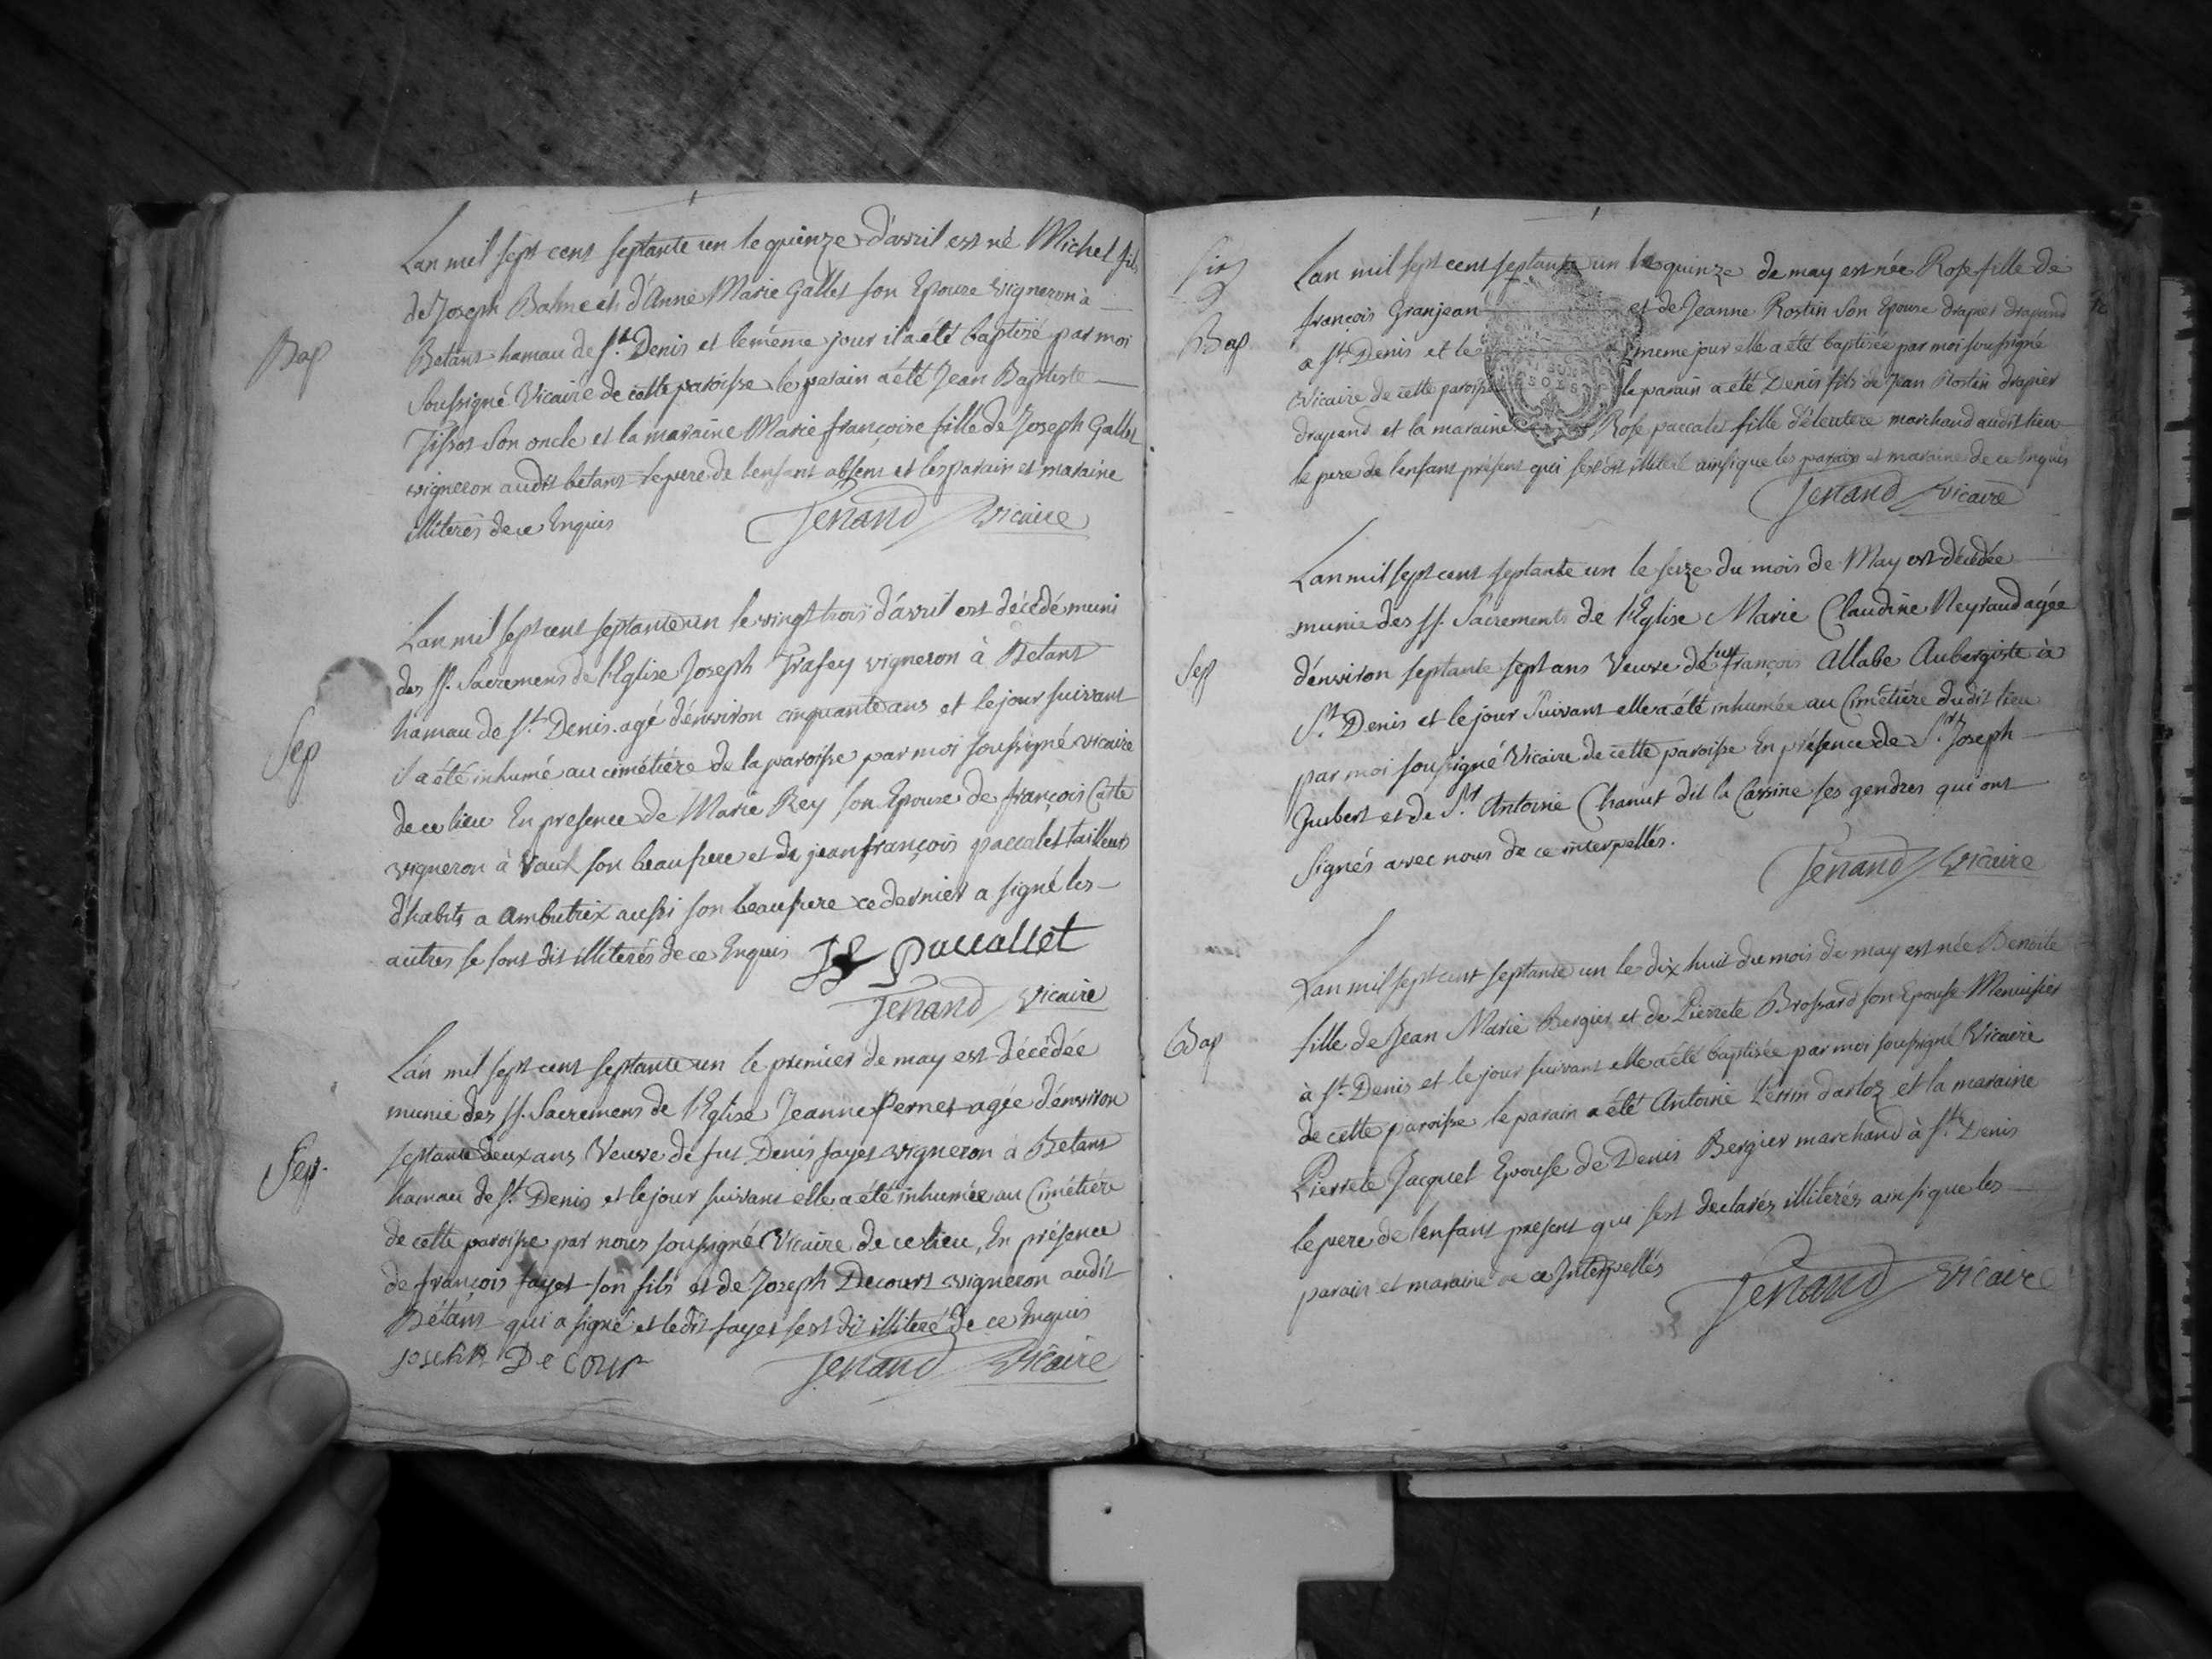 Lan mil sept cent septante un le quinze d'avril est né Michel fils
de Joseph Balme et d'Anne Marie Gallet son Epouse vigneron à
Bap
Betans hamau de St Denis et le méme jour il a été baptisé par moi
soussigné Vicaire de cette paroisse le parain a été Jean Baptiste
Tissot son oncle et la maraine Marie françoise fille de Joseph Gallet
vigneron audit betans le pere de lenfant absent et les parain et maraine
illiterés de ce Enquis Jenand vicaire
Lan mil sept cent septante un le vingt trois d'avril est décédé muni
des SS. Sacremens de l'Eglise Joseph Trafey vigneron à Betans
hamau de St Denis agé d'environ cinquante ans et le jour suivant
Sep
il a été inhumé au cimétiére de la paroisse par moi soussigné vicaire
de ce lieu En presence de Marie Rey son Epouse de françois Cotte
vigneron à Vaux son beaufrere et de jean françois paccalet tailleur
d'habits a Ambutrix aussi son beaufrere ce dernier a signé les
autres se sont dit illiterés de ce Enquis JF paccallet
Jenand vicaire
Lan mil sept cent septante un le premier de may est décédée
munie des SS. Sacremens de l'Eglise Jeanne Pernet agée d'environ
Sep.
septante deux ans Veuve de fut Denis fayet vigneron à Betans
hamau de St Denis et le jour suivant elle a été inhumée au Cimétiére
de cette paroisse par nous soussigné Vicaire de ce lieu, En présence
de françois fayet son fils et de Joseph Decourt vigneron audit
Bétans qui a signé et ledit fayet sest dit illiteré de ce Enquis
Joseph De cour Jenand Vicaire
Lan mil sept cent septante un le quinze de may est née Rose fille de
françois Granjean et de Jeanne Rostin son Epouse drapier drapand
Bap
a St Denis et le meme jour elle a été baptisée par moi soussigné
Vicaire de cette paroisse le parain a été Denis fils de Jean Rostin drapier
drapand et la maraine Rose paccalet fille d'éleutere marchand audit lieu
le pere de lenfant présent qui sest dit illiteré ainsi que les parain et maraine de ce Enquis
Jenand vicaire
Lan mil sept cent septante un le seize du mois de May est décédée
munie des SS. Sacrements de l'Eglise Marie Claudine Neyraud agée
Sep
d'environ septante sept ans Veuve de fut françois Allabe Aubergiste à
St Denis et le jour suivant elle a été inhumée au Cimétiére dudit lieu
par moi soussigné Vicaire de cette paroisse En présence de Sr Joseph
Jubert et de Sr Antoine Chanut dit la Cassine ses gendres qui ont
signés avec nous de ce interpellés.
Jenand Vicaire
Lan mil sept cent septante un le dix huit du mois de may est née Benoite
Bap
fille de Jean Marie Bergier et de Pierrete Brossard son Epouse Menuisier
à St Denis et le jour suivant elle a été baptisée par moi soussigné Vicaire
de cette paroisse le parain a été Antoine Perrin darloz et la maraine
Pierrete Jacquet Epouse de Denis Bergier marchand à St Denis
le pere de lenfant present qui sest declarés illiterés ainsi que les
parain et maraine de ce Interpellés Jenand vicaire